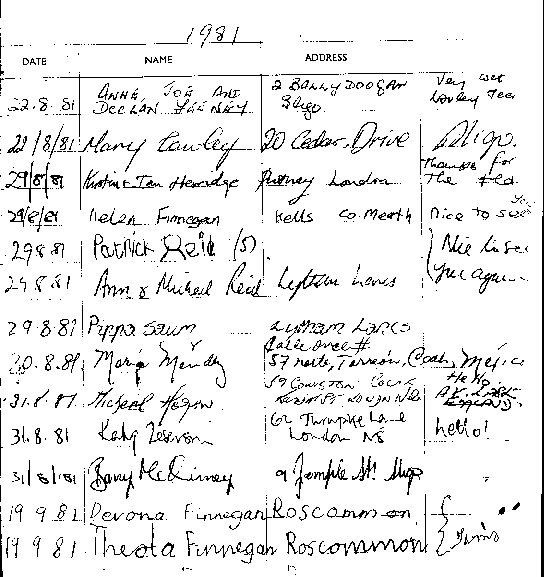 1981
DATE NAME ADDRESS
22.8.81 ANNE, JOE AND DECLAN FEENEY 2 BALLYDOOGAN Sligo Very wet Lovley Tea
22/8/81 Mary Cawley 20 Cedar Drive Sligo.
29/8/81 London Thanks for the tea
29/8/81 Helen Finnegan Kells Co. Meath Nice to see you
29.8.81 Patrick Reid (5) Nice to see you again
29.8.81 Ann & Michael Reid Lytham Lancs
29.8.81 Pippa LYTHAM LANCS
30.8.81 Maria Méndez Calle Once # 57 norte, Torreón, Coah, México
31.8.81 Michael Hogan London Hello
31.8.81 Katy 62 Turnpike Lane London N8 hello!
31/8/81 Barry McKinney 9 Temple St. Sligo
19 9 81 Devona Finnegan Roscommon
19 9 81 Theota Finnegan Roscommon